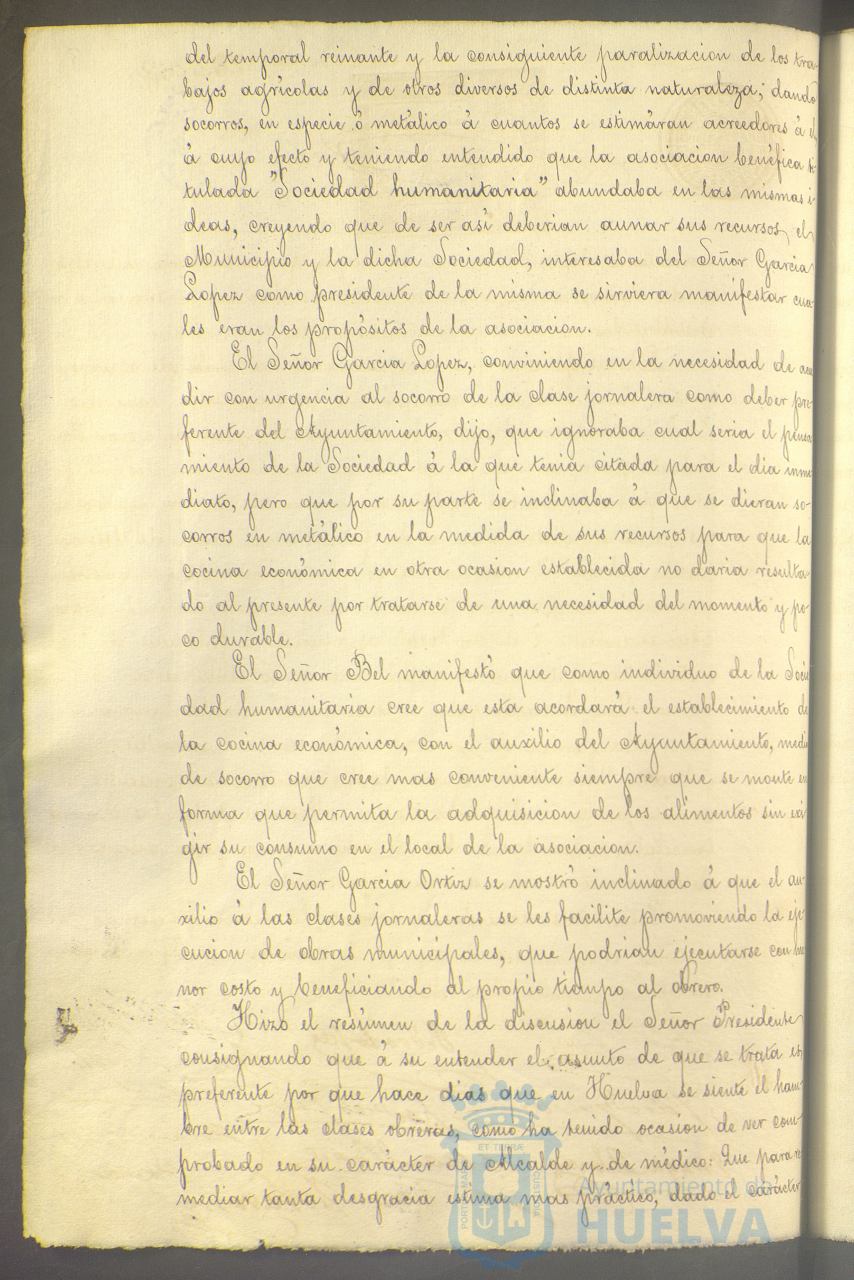 del temporal reinante y la consiguiente paralizacion de los tra-
bajos agrícolas y de otros diversos de distinta naturaleza; dando
socorros, en especie ó metálico á cuantos se estimáran acreedores á el,
á cuyo efecto y teniendo entendido que la asociacion benéfica ti-
tulada "Sociedad humanitaria" abundaba en las mismas i-
deas, creyendo que de ser así deberian aunar sus recursos, el
Municipio y la dicha Sociedad, interesaba del Señor Garcia
Lopez como presidente de la misma se sirviera manifestar cua-
les eran los propósitos de la asociacion.
El Señor Garcia Lopez, conviniendo en la necesidad de acu
dir con urgencia al socorro de la clase jornalera como deber pre-
ferente del Ayuntamiento, dijo, que ignoraba cual seria el pensa
miento de la Sociedad á la que tenia citada para el dia inme
diato, pero que por su parte se inclinaba á que se dieran so-
corros en metálico en la medida de sus recursos para que la
cocina económica en otra ocasion establecida no daria resulta-
do al presente por tratarse de una necesidad del momento y po-
co durable.
El Señor Bel manifestó que como individuo de la Socie
dad humanitaria cree que esta acordará el establecimiento de
la cocina económica, con el auxilio del Ayuntamiento, medio
de socorro que cree mas conveniente siempre que se monte en
forma que permita la adquisicion de los alimentos sin exi
gir su consumo en el local de la asociacion.
El Señor Garcia Ortiz se mostró inclinado á que el au-
xilio á las clases jornaleras se les facilite promoviendo la eje-
cucion de obras municipales, que podrian ejecutarse con me
nor costo y beneficiando al propio tiempo al obrero.
Hizo el resúmen de la discusion el Señor Presidente
consignando que á su entender el asunto de que se trata es
preferente por que hace dias que en Huelva se siente el ham-
bre entre las clases obreras, como ha tenido ocasion de ver com-
probado en su carácter de Alcalde y de médico: Que para re
mediar tanta desgracia estima mas práctico, dado el carácter
Ayuntamiento de
HUELVA